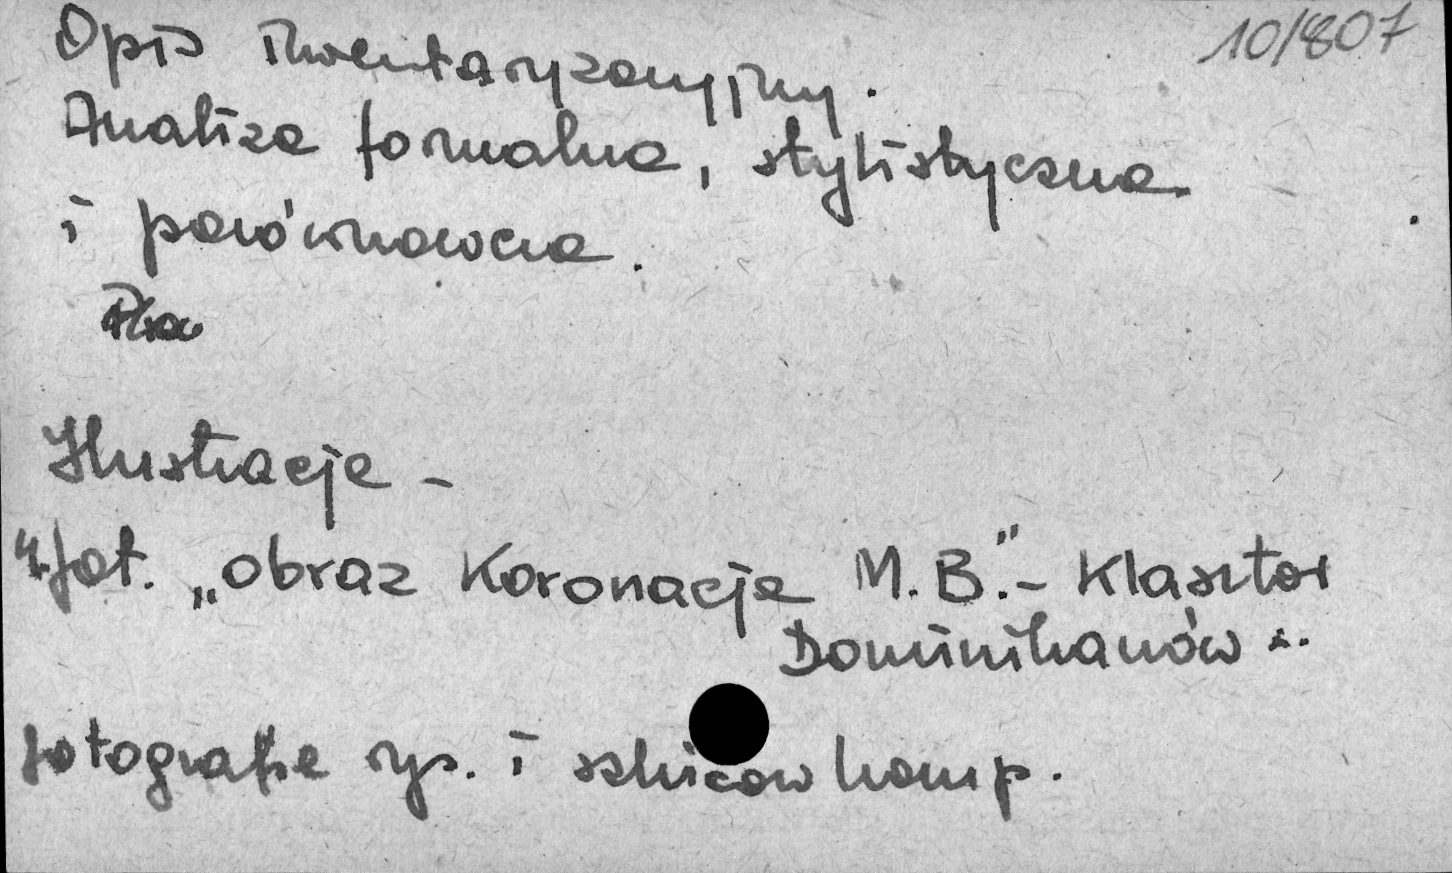 10/807
Opis inwentaryzacyjny.
Analiza formalna, stylistyczna
i porównawcza.
Ilustracje -
4 fot. „obraz Koronacje M.B." - Klasztor
Dominikanów
fotografie rys. i szkiców komp.